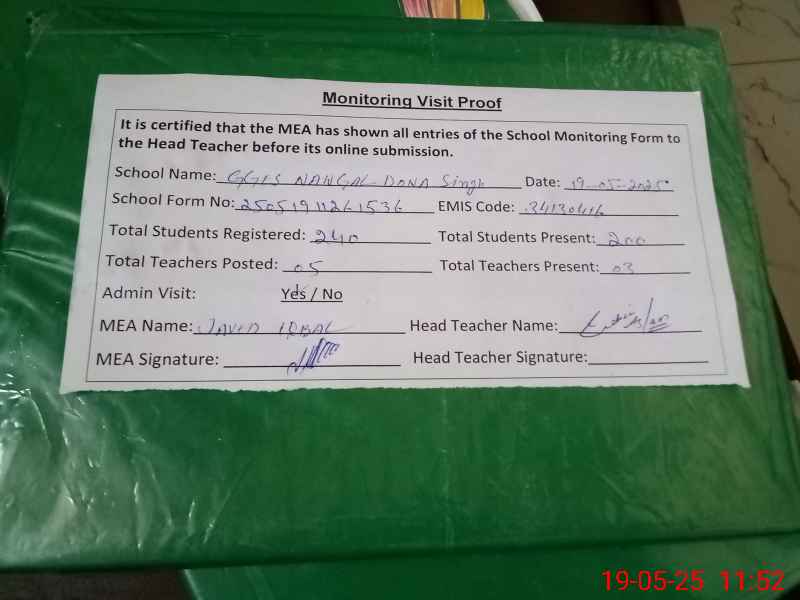 Monitoring Visit Proof
It is certified that the MEA has shown all entries of the School Monitoring Form to
the Head Teacher before its online submission.
School Name: GGES NANGAL DONA Singh Date: 19-05-2025
School Form No: 25051911261536 EMIS Code: 34130416
Total Students Registered: 240 Total Students Present: 200
Total Teachers Posted: 05 Total Teachers Present: 03
Admin Visit: Yes / No
MEA Name: JAVED IQBAL Head Teacher Name:
MEA Signature: Head Teacher Signature:
19-05-25 11:52